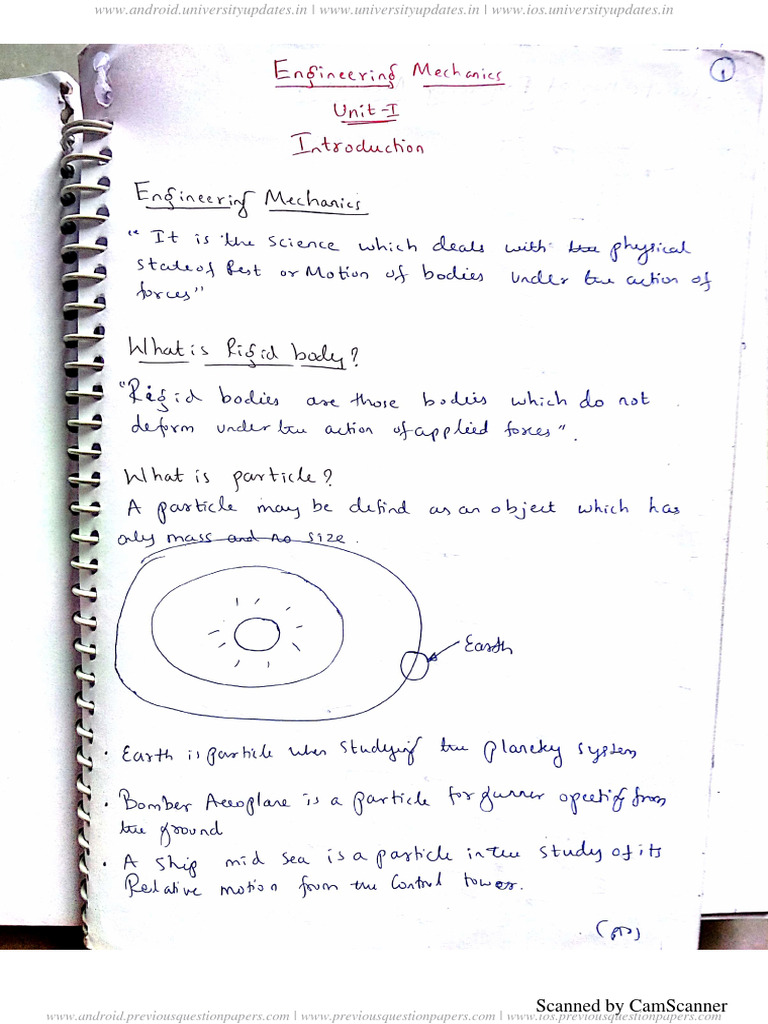 www.android.universityupdates.in | www.universityupdates.in | www.ios.universityupdates.in
1
Engineering Mechanics
Unit-I
Introduction
Engineering Mechanics
"It is the science which deals with the physical
state of Rest or Motion of bodies under the action of
forces"
What is Rigid body?
"Rigid bodies are those bodies which do not
deform under the action of applied forces".
What is particle?
A particle may be defind as an object which has
only mass and no size.
Earth
• Earth is particle when studying the planeky system
• Bomber Aeroplane is a particle for gunner opecting from
the ground
• A ship mid sea is a particle in the study of its
Relative motion from the control tower.
Scanned by CamScanner
www.android.previousquestionpapers.com | www.previousquestionpapers.com | www.ios.previousquestionpapers.com